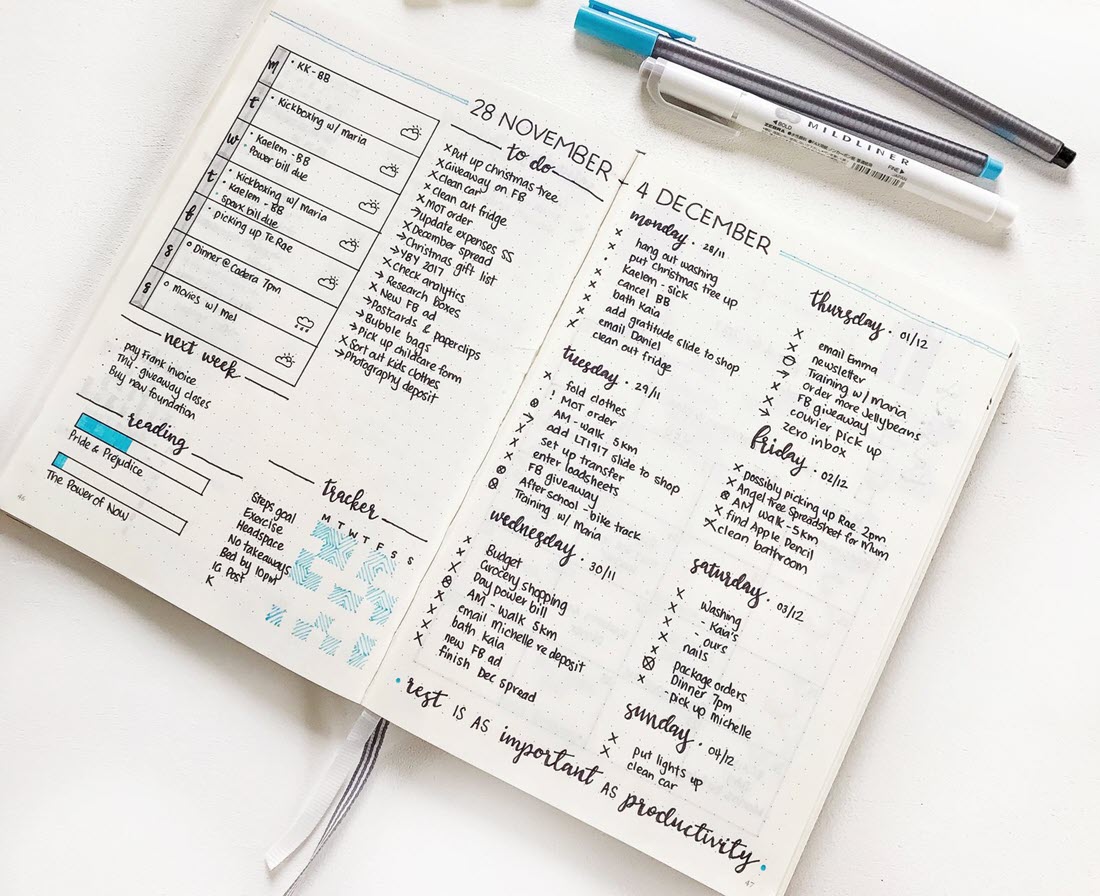 28 NOVEMBER - 4 DECEMBER
m
• KK - BB
t
• Kickboxing w/ maria
w
• Kaelem - BB
• Power bill due
t
• Kickboxing w/ maria
• Kaelem - BB
• Spark bill due
f
• picking up Te Rae
s
o Dinner @ Cadera 7pm
s
o movies w/ mel
next week
• pay frank invoice
• Thu - giveaway closes
• Buy new foundation
reading
Pride & Prejudice
The Power of Now
46
to do
× Put up christmas tree
× Giveaway on FB
× clean car
× clean out fridge
× MOT order
→ update expenses SS
× December spread
→ Christmas gift list
→ YBY 2017
× Check analytics
→ Research boxes
× New FB ad
→ Postcards & paperclips
→ Bubble bags
× Pick up childcare form
× Sort out kids clothes
→ Photography deposit
tracker
M T W T F S S
Steps goal
Exercise
Headspace
No takeaways
Bed by 10pm
IG Post
K
monday • 28/11
× hang out washing
× put christmas tree up
• Kaelem - sick
× cancel BB
× bath Kaia
× add gratitude slide to shop
× email Daniel
× clean out fridge
tuesday • 29/11
× fold clothes
! MOT order
⊗ AM - walk 5km
→ add LT1917 slide to shop
× set up transfer
× enter loadsheets
× FB giveaway
⊗ After school - bike track
⊗ Training w/ Maria
wednesday • 30/11
× Budget
× Grocery shopping
× Day power bill
⊗ AM - walk 5km
× email michelle re deposit
× bath kaia
× new FB ad
× finish Dec spread
thursday • 01/12
× email Emma
× newsletter
⊖ Training w/ Maria
→ order more Jellybeans
× FB giveaway
× courier pick up
→ zero inbox
friday • 02/12
× possibly picking up Rae 2pm
× Angel Tree Spreadsheet for Mum
⊗ AM walk - 5km
× find Apple Pencil
× clean bathroom
saturday • 03/12
× washing
× - Kaia's
× - ours
× nails
× package orders
⊗ Dinner 7pm
× - pick up michelle
sunday • 04/12
× put lights up
× clean car
• rest IS AS important AS productivity •
47
MILDLINER
◄BOLD
FINE►
JAPAN